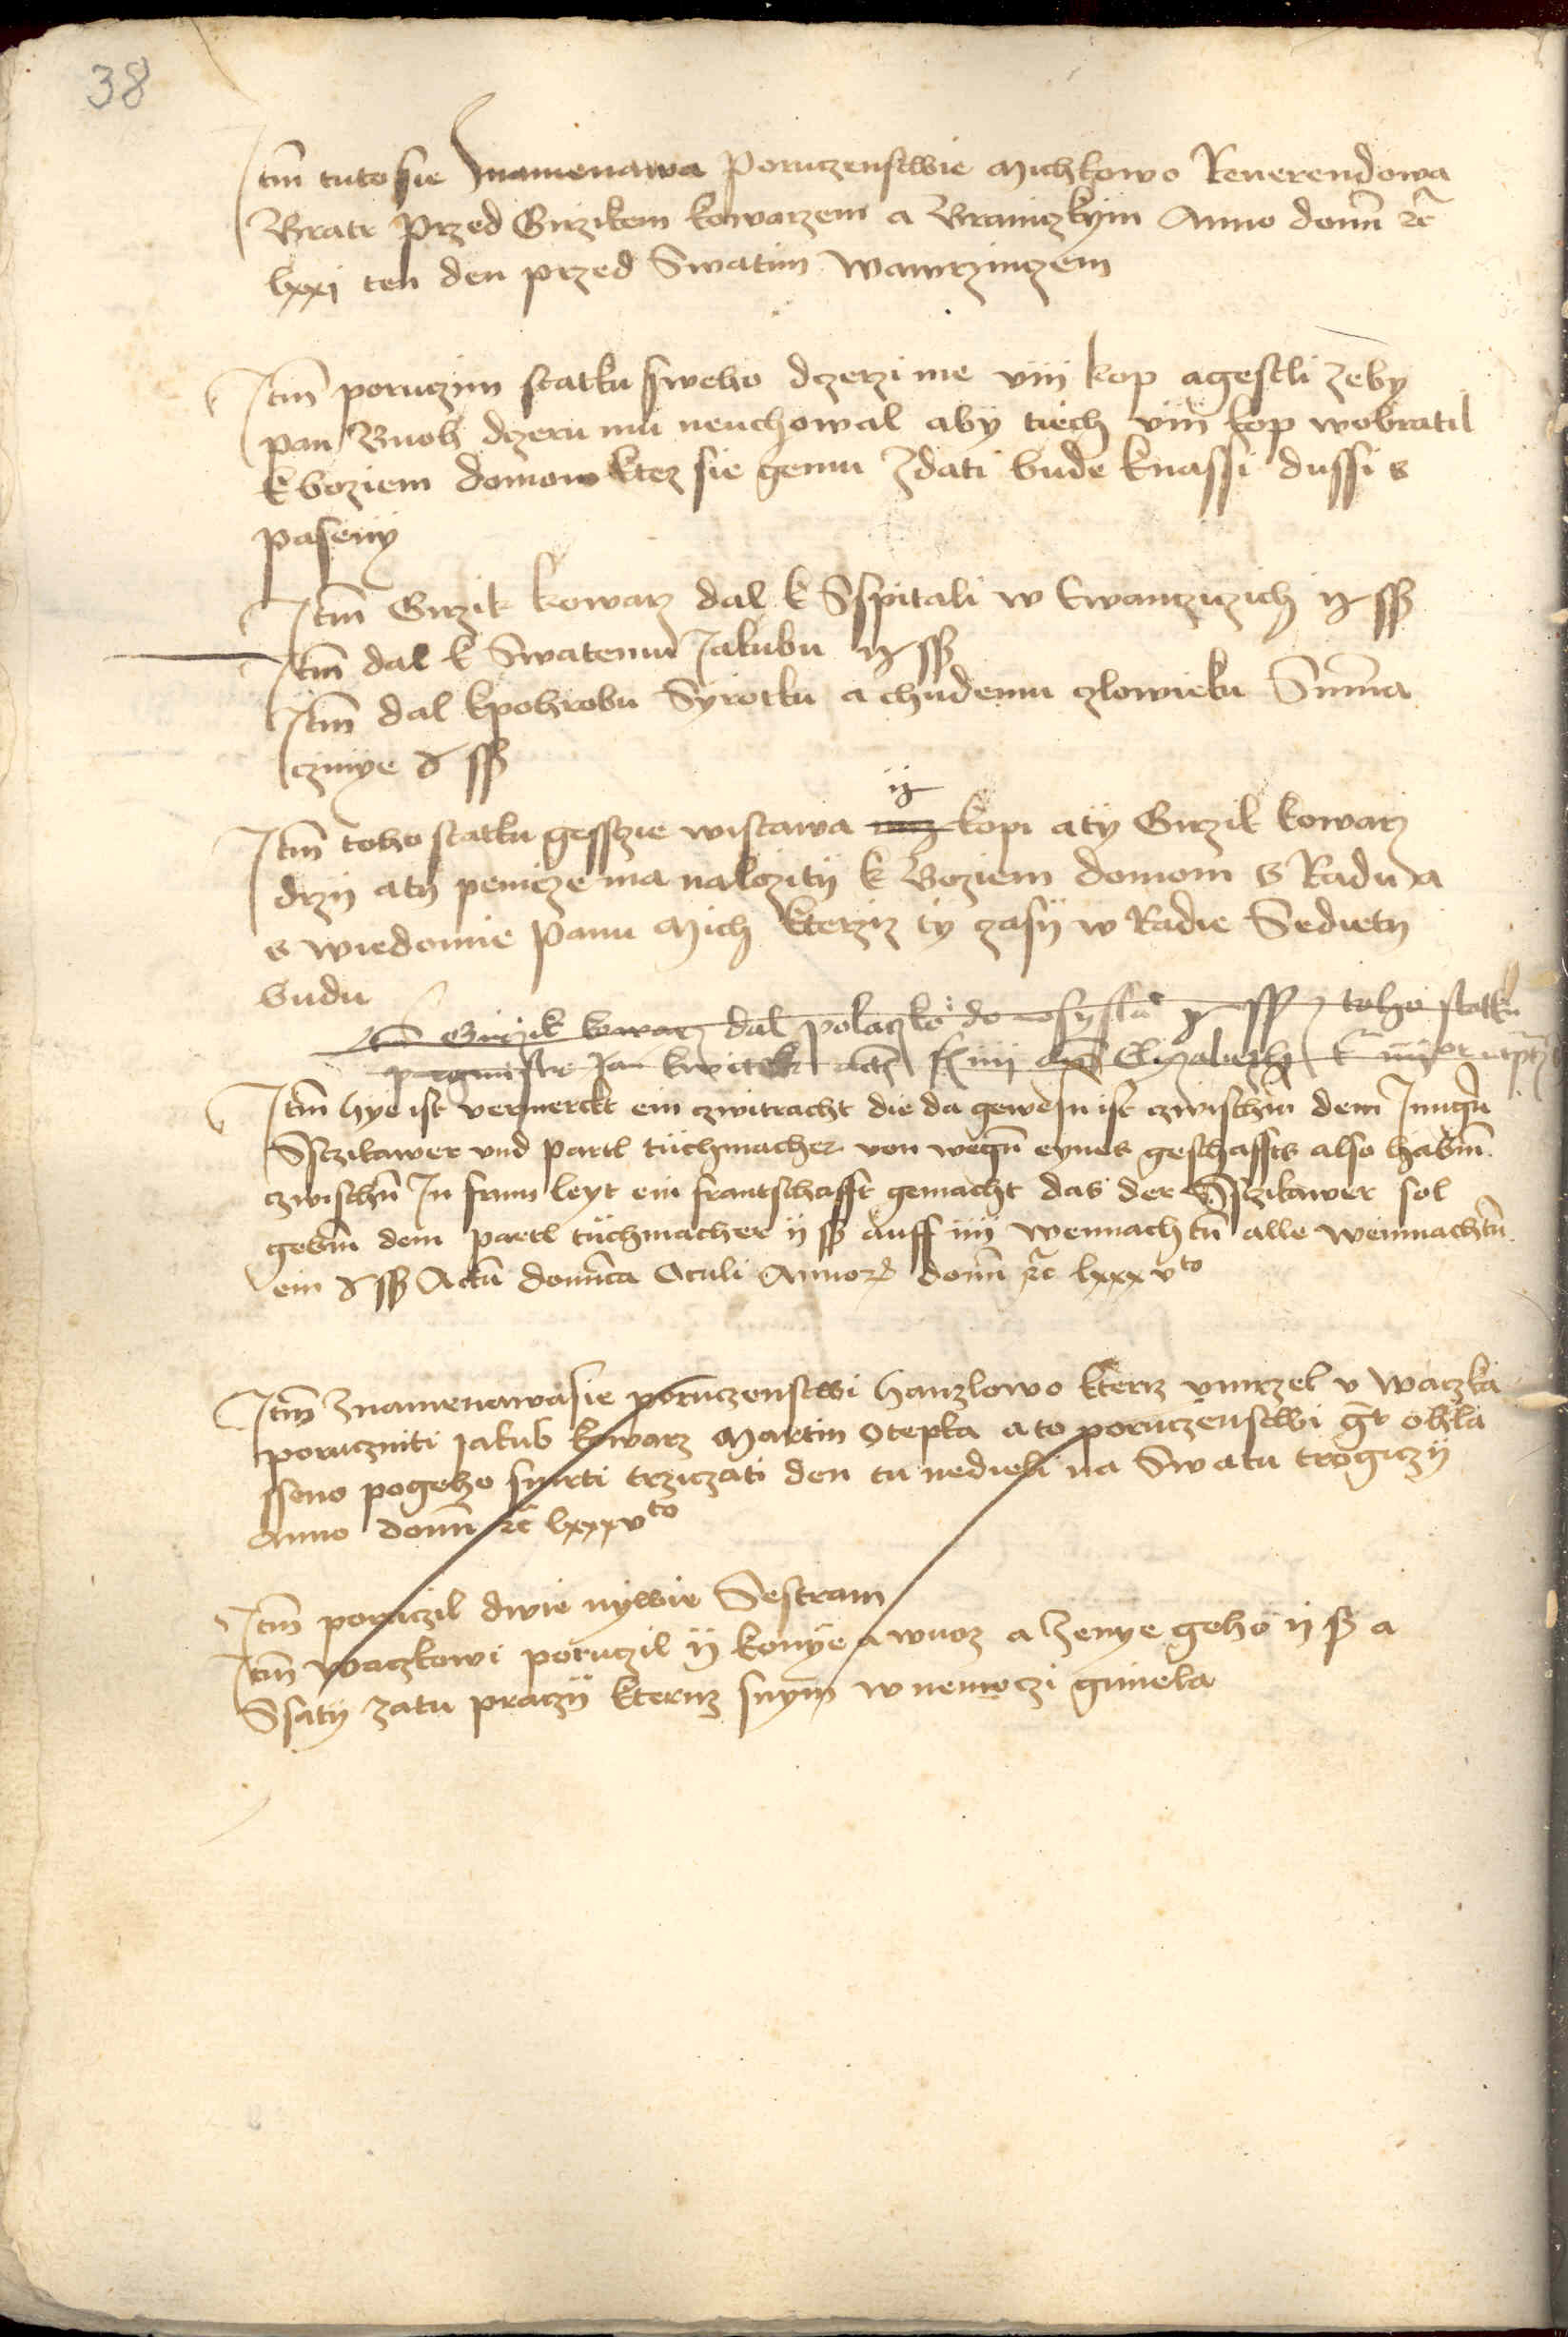 38
Itm tuto sie znamenawa Poruczenstwie Michkowo Reuerendowa
Bratr Przed Girzikem kowarzem a Braniczkym Anno domi etc
lxxj ten den przed Swatim Wawrzinczem
Itm poruczim statku sweho dczerzi me viij kop a gestli zeby
pan Buoh dczeru mu neuchowal aby tiech viij kop wobratil
k boziem domom ktez sie gemu zdati bude k nassi dussi s
paseny
Itm Girzik kowarz dal k Sspitali w Ewanczizich ij ss
Itm dal k Swatemu Jakubu ij ss
Itm dal k pohrobu Syrotku a chudemu czlowieku Summa
czinye ss
Itm toho statku gesstzie wistawa ij kopi a ty Girzik kowarz
drzy a ty penieze ma naloziti k Boziem domom s Radu a
s wiedomie Panu Mich kterziz ty zasy w Radie Sediety
budu
Itm Girzik kowarz dal polaczko do ss toho statku
Jan kwitek Elizabeth
Itm hye ist vermerckt ein czwitracht die da gewesn ist czwischn dem Jungn
Sstzikawer vnd partl tuchmacher von wegn eynes geschaffts also habm
czwischn In frum leyt ein frantschafft gemacht das der Sstzikawer sol
gebm dem partl tuchmacher ij ss auff iiij weinnachtn alle weinnachtn
ein ss Actu domica Oculi Annor domi etc lxxxvto
Itm Znamenawa sie poruczenstwi hanzlowo kteriz vmrzel v Waczka
porucznici Jakub kowarz Martin Stepka a to poruczenstwi gt ohla
sseno po geho smrti trziczati den tu nedieli na Swatu trogiczy
Anno domi etc lxxxvto
Itm poruczil dwie nywie Sestram
Itm Waczkowi poruczil ij konye a wuoz a zenye geho ij ss a
Ssaty za tu praczy kteruz s nym w nemoczi gmiela